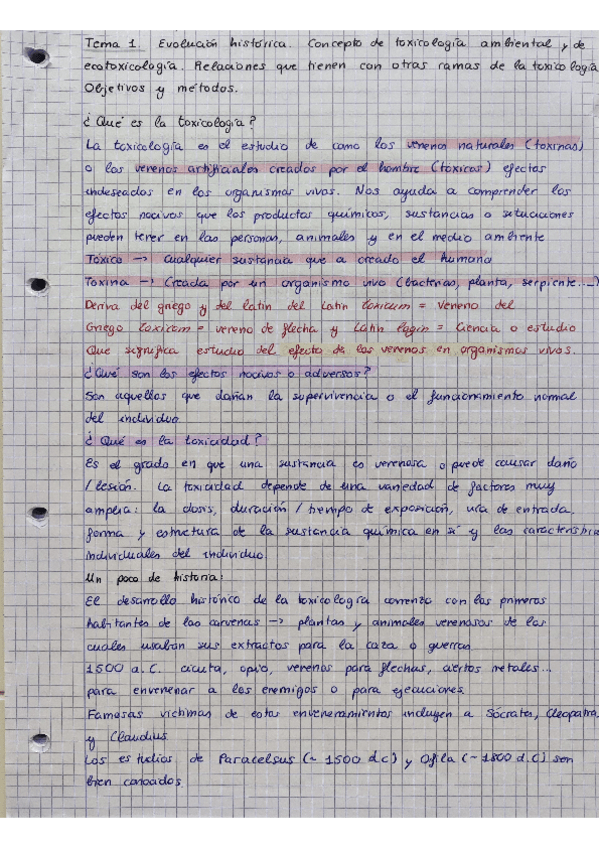 Tema 1. Evolución histórica. Concepto de toxicología ambiental y de
ecotoxicología. Relaciones que tienen con otras ramas de la toxicología
Objetivos y métodos.
¿Qué es la toxicología?
La toxicología es el estudio de como los venenos naturales (toxinas)
o los venenos artificiales creados por el hombre (toxicos) efectos
indeseados en los organismos vivos. Nos ayuda a comprender los
efectos nocivos que los productos químicos, sustancias o situaciones
pueden tener en las personas, animales y en el medio ambiente
Tóxico → Cualquier sustancia que a creado el humano
Toxina → Creada por un organismo vivo (bacterias, planta, serpiente...)
Deriva del griego y del latín del Latin toxicum = veneno del
Griego toxikom = veneno de flecha y Latin login = Ciencia o estudio
Que significa estudio del efecto de los venenos en organismos vivos.
¿Qué son los efectos nocivos o adversos?
Son aquellos que dañan la supervivencia o el funcionamiento normal
del individuo
¿Qué es la toxicidad?
Es el grado en que una sustancia es venenosa o puede causar daño
/lesión. La toxicidad depende de una variedad de factores muy
amplia: la dosis, duración / tiempo de exposición, via de entrada,
forma y estructura de la sustancia química en sí y las caracteristicas
individuales del individuo.
Un poco de historia:
El desarrollo histórico de la toxicología comenzo con los primeros
habitantes de las cavernas → plantas y animales venenosos de los
cuales usaban sus extractos para la caza o guerras.
1500 a.C. cicuta, opio, venenos para flechas, ciertos metales...
para envenenar a los enemigos o para ejecuciones.
Famosas victimas de estos envenenamientos incluyen a Sócrates, Cleopatra,
y Claudius
Los estudios de Paracelsus (~ 1500 d.c) y Ofila (~ 1800 d.C) son
bien conocidos.